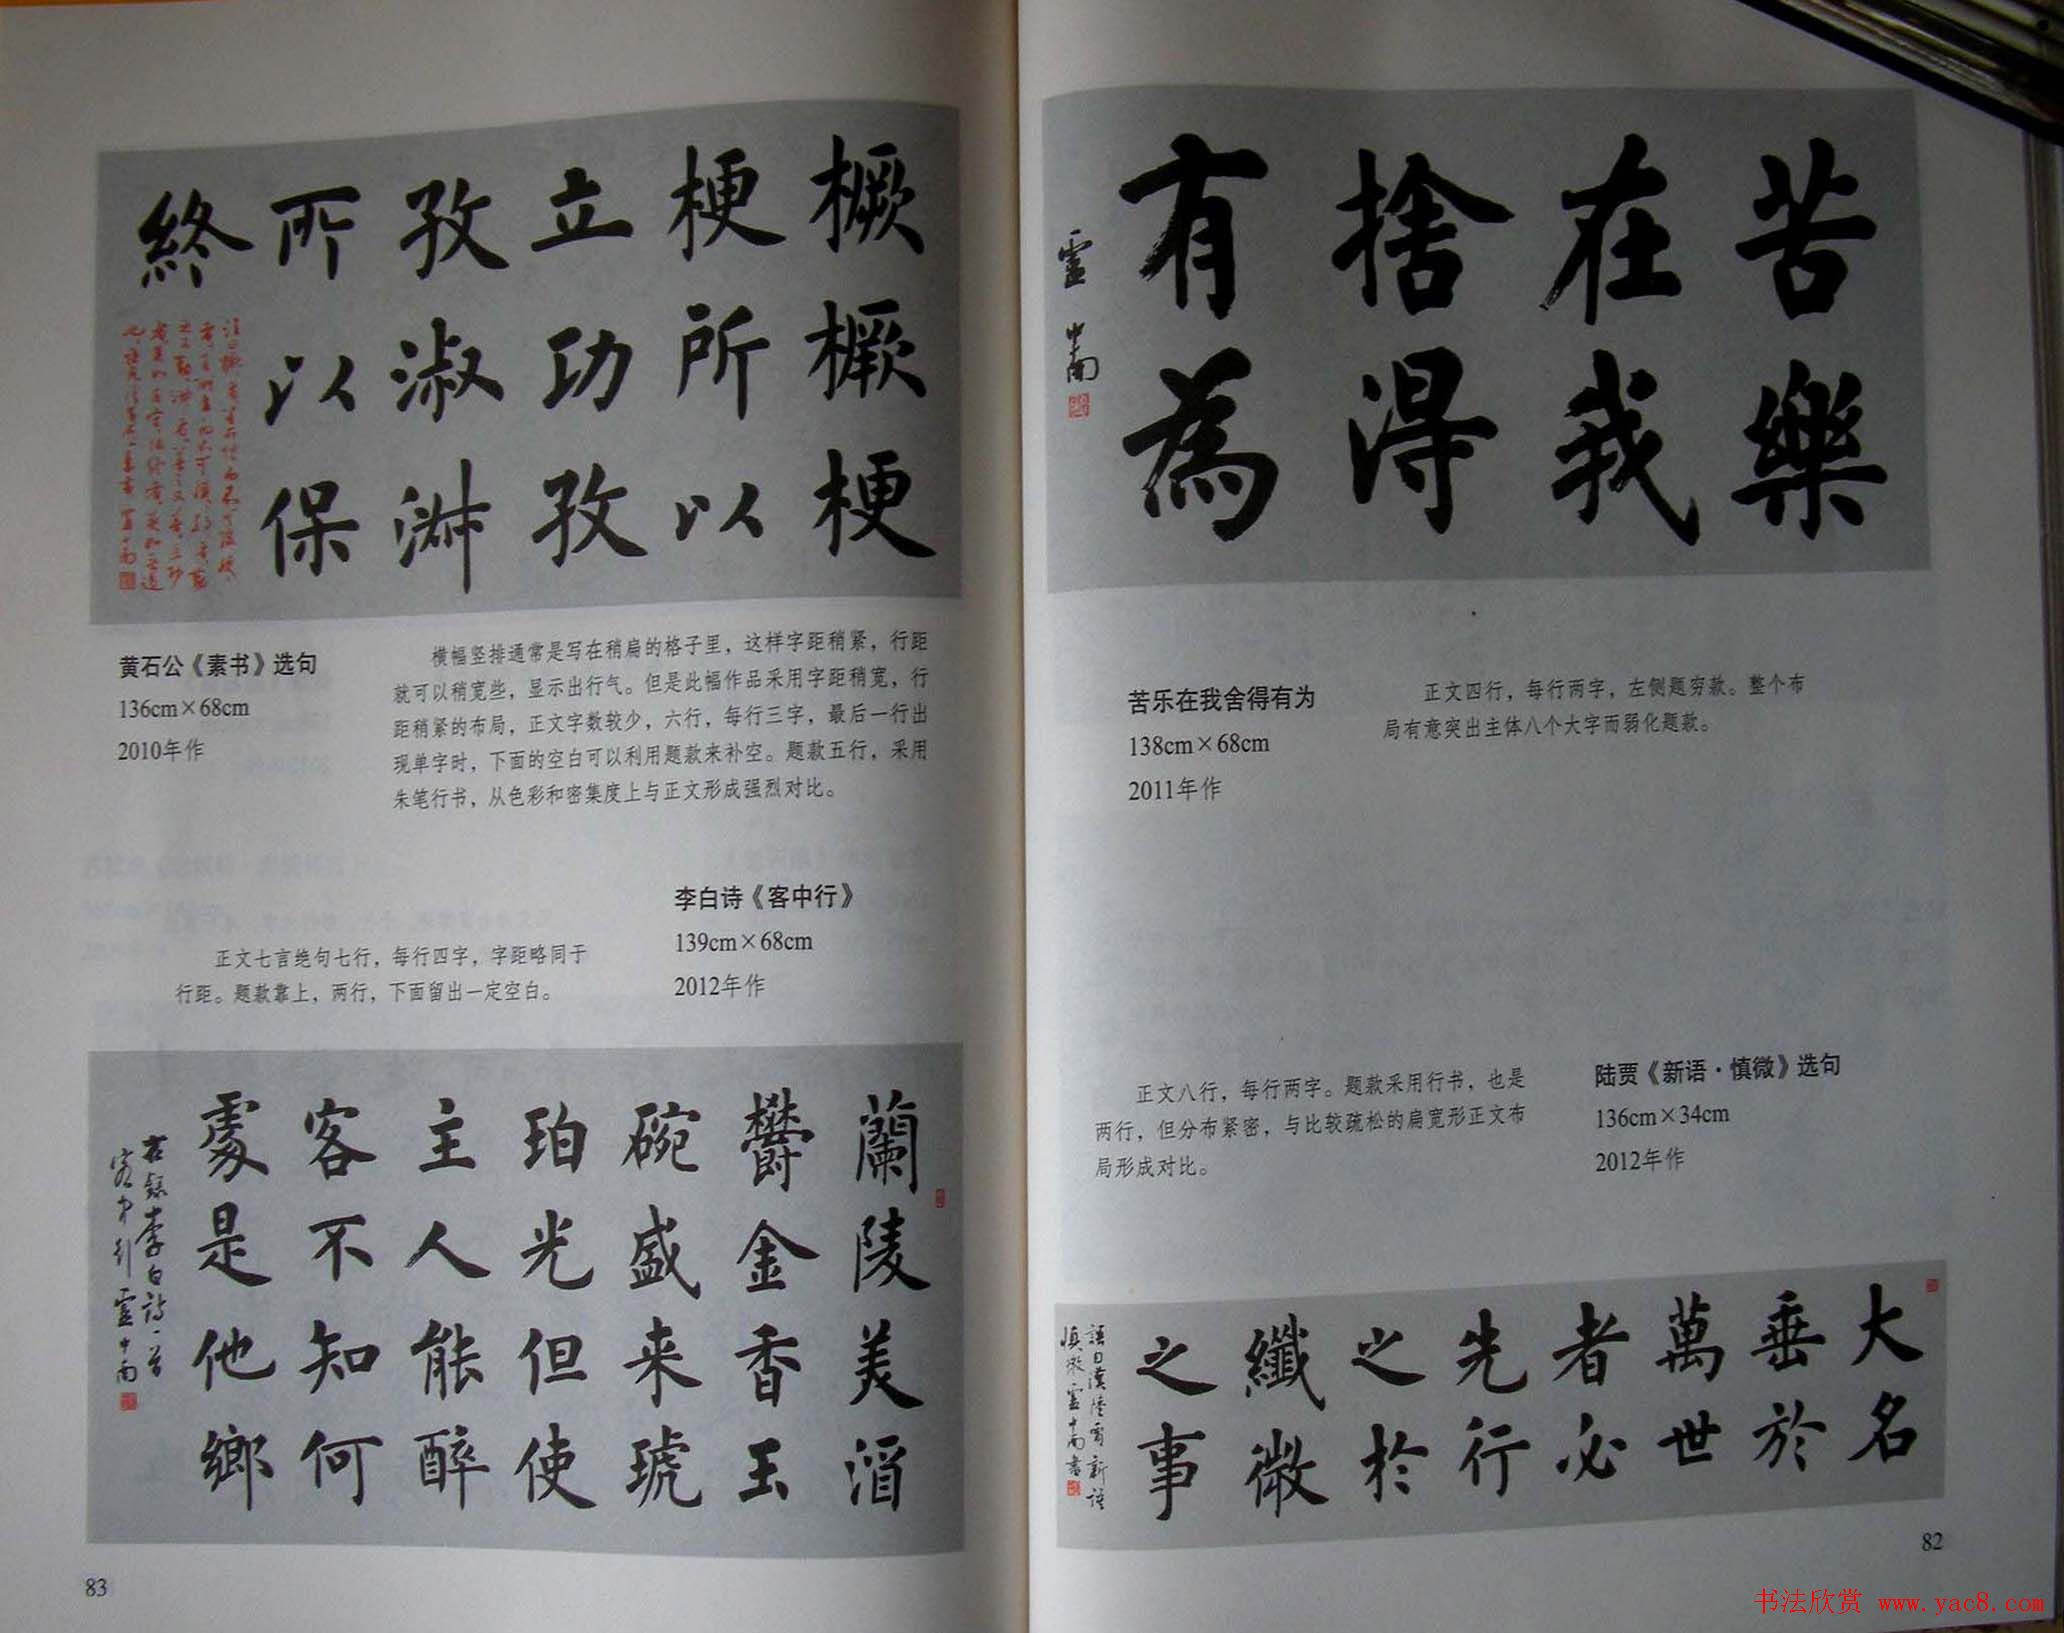 苦樂
在我
捨得
有為
盧中南
苦乐在我舍得有为
138cm×68cm
2011年作
正文四行，每行两字，左侧题穷款。整个布
局有意突出主体八个大字而弱化题款。
陆贾《新语·慎微》选句
136cm×34cm
2012年作
正文八行，每行两字。题款采用行书，也是
两行，但分布紧密，与比较疏松的扁宽形正文布
局形成对比。
大名
垂於
萬世
者必
先行
之於
纖微
之事
漢陸賈新語
慎微盧中南書
82
橛橛梗
梗所以
立功孜
孜淑淑
所以保
終
黄石公《素书》选句
136cm×68cm
2010年作
横幅竖排通常是写在稍扁的格子里，这样字距稍紧，行距
就可以稍宽些，显示出行气。但是此幅作品采用字距稍宽，行
距稍紧的布局，正文字数较少，六行，每行三字，最后一行出
现单字时，下面的空白可以利用题款来补空。题款五行，采用
朱笔行书，从色彩和密集度上与正文形成强烈对比。
李白诗《客中行》
139cm×68cm
2012年作
正文七言绝句七行，每行四字，字距略同于
行距。题款靠上，两行，下面留出一定空白。
蘭陵美酒
鬱金香玉
碗盛来琥
珀光但使
主人能醉
客不知何
處是他鄉
右録李白詩一首
客中行盧中南
83
书法欣赏 www.yac8.com